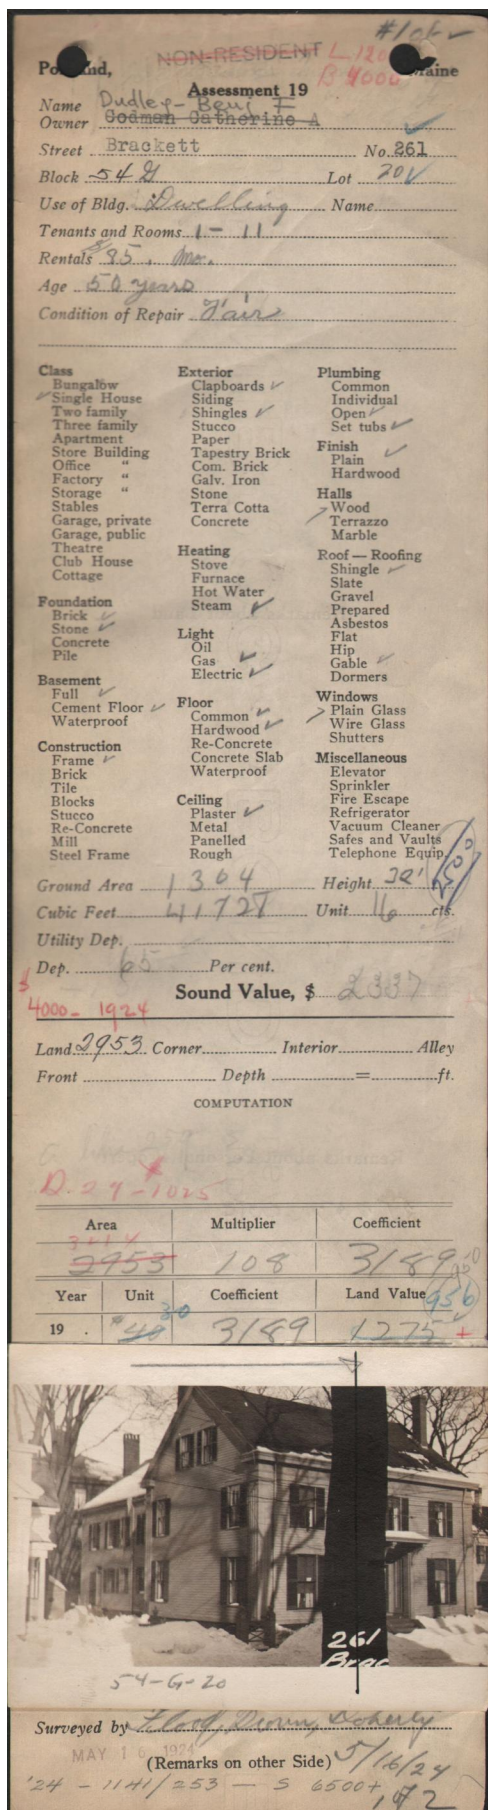 #1 of
NON-RESIDENT L 120
Portland, B 4000 Maine
Assessment 19
Name Dudley - Benj F
Owner Godman Catherine A
Street Brackett No. 261
Block 54 G Lot 20 ✓
Use of Bldg. Dwelling Name
Tenants and Rooms 1 - 11
Rentals $85. Mo.
Age 50 years
Condition of Repair Fair
Class
Bungalow
✓ Single House
Two family
Three family
Apartment
Store Building
Office "
Factory "
Storage "
Stables
Garage, private
Garage, public
Theatre
Club House
Cottage
Foundation
Brick ✓
Stone ✓
Concrete
Pile
Basement
Full ✓
Cement Floor ✓
Waterproof
Construction
Frame ✓
Brick
Tile
Blocks
Stucco
Re-Concrete
Mill
Steel Frame
Exterior
Clapboards ✓
Siding
Shingles ✓
Stucco
Paper
Tapestry Brick
Com. Brick
Galv. Iron
Stone
Terra Cotta
Concrete
Heating
Stove
Furnace
Hot Water
Steam ✓
Light
Oil
Gas ✓
Electric ✓
Floor
Common ✓
Hardwood ✓
Re-Concrete
Concrete Slab
Waterproof
Ceiling
Plaster ✓
Metal
Panelled
Rough
Plumbing
Common
Individual
Open ✓
Set tubs ✓
Finish
Plain ✓
Hardwood
Halls
✓ Wood
Terrazzo
Marble
Roof — Roofing
Shingle ✓
Slate
Gravel
Prepared
Asbestos
Flat
Hip
Gable ✓
Dormers
Windows
✓ Plain Glass
Wire Glass
Shutters
Miscellaneous
Elevator
Sprinkler
Fire Escape
Refrigerator
Vacuum Cleaner
Safes and Vaults
Telephone Equip.
Ground Area 1304 Height 32'
Cubic Feet 41728 Unit 16 cts.
Utility Dep.
Dep. 65 Per cent.
Sound Value, $ 2337
$ 4000 - 1924
Land 2953 Corner Interior Alley
Front Depth = ft.
COMPUTATION
D. 29 - 1025
Area Multiplier Coefficient
2953 108 3189
Year Unit Coefficient Land Value 956
30
19 . $40 3189 1275 +
261
Brac
54-G-20
Surveyed by Flood, Doherty
MAY 16 1924
(Remarks on other Side) 5/16/24
'24 - 1141/253 - S 6500+